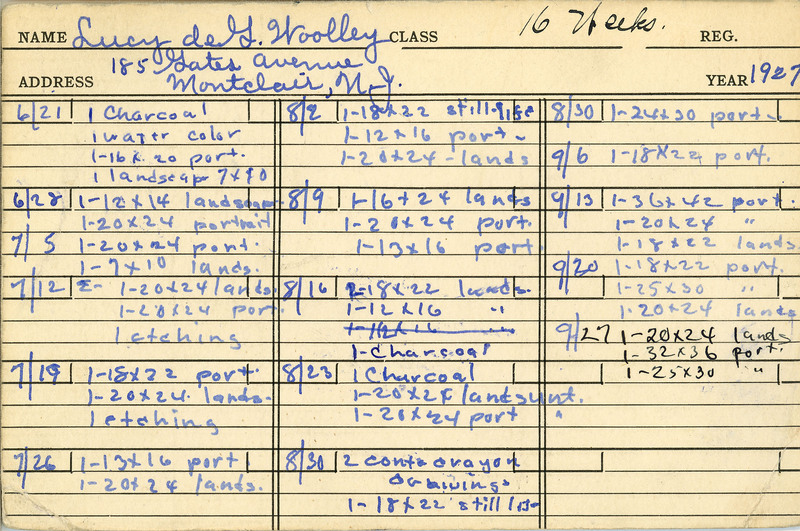 NAME Lucy de G. Woolley CLASS 16 Weeks. REG.
ADDRESS 185 Gates Avenue
Montclair, N.J. YEAR 1927
6/21 1 Charcoal
1 water color
1-16 x 20 port.
1 landscap 7x90
6/28 1-12x14 landscap
1-20x24 portrait
7/5 1-20x24 port.
1-7x10 lands.
7/12 1-20x24 lands.
1-20x24 port.
1 etching
7/19 1-18x22 port.
1-20x24. lands.
1 etching
7/26 1-13x16 port
1-20x24 lands.
8/2 1-18x22 still-life
1-12x16 port-
1-20x24-lands
8/9 1-16x24 lands
1-20x24 port.
1-13x16 port
8/16 2-18x22 lands.
1-12x16 "
1-12x16 "
1-Charcoal
8/23 1 Charcoal
1-20x24 land
1-20x24 port "
8/30 2 conte crayon
drawings
1-18x22 still life
8/30 1-24x30 port-
9/6 1-18x22 port.
9/13 1-36x42 port.
1-20x24 "
1-18x22 lands.
9/20 1-18x22 port.
1-25x30 "
1-20x24 lands
9/27 1-20x24 lands
1-32x36 port.
1-25x30 "